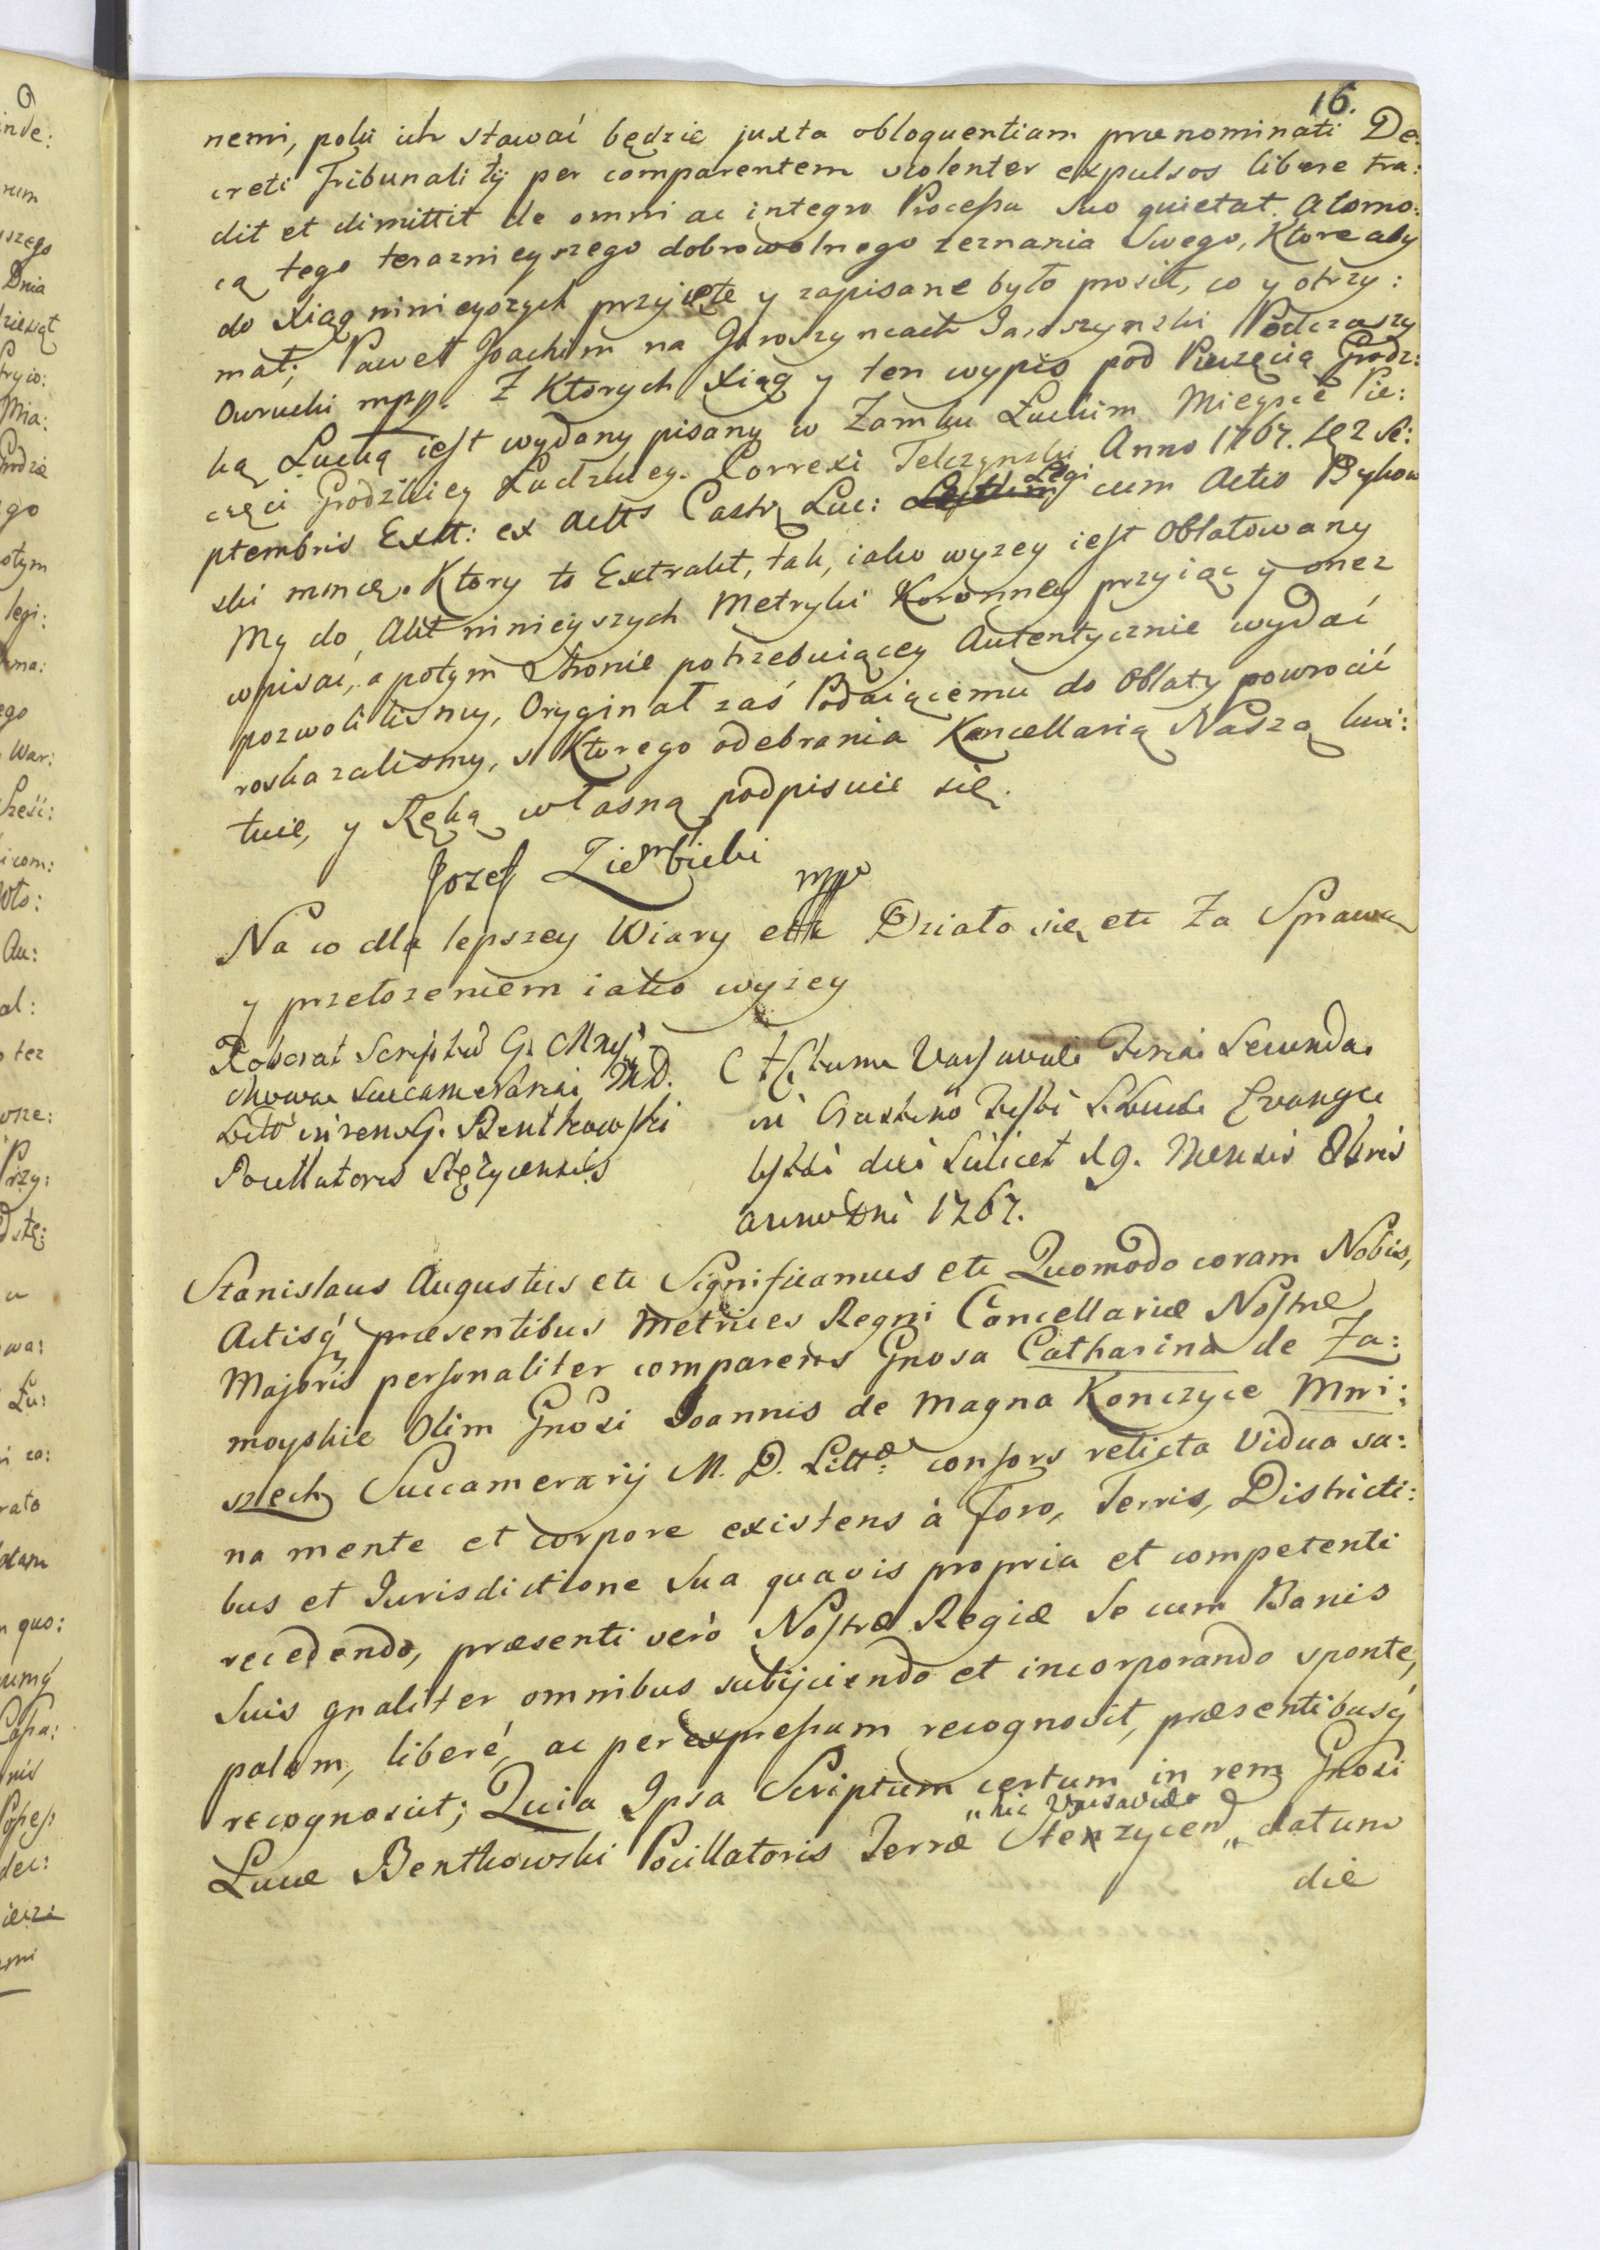 16.
nemi, polu ich stawać będzie juxta obloquentiam prænominati De:
creti Tribunalitÿ per comparentem violenter expulsos libere tra:
dit et dimittit de omni ac integro Processu suo quietat. a tomo:
cą tego teraznieyszego dobrowolnego zeznania Swego, Ktore aby
do Xiąg ninieyszych przyięte y zapisane było prosił, co y otrzy:
mał; Paweł Joachim na Jaroszyncach Jaroszynski Podczaszy
Owrucki mpp. Z Ktorych Xiąg y ten wypis pod Pieczęcią Grodz:
ką Łucką iest wydany pisany w Zamku Łuckim Mieysce Pie:
częci Grodzkiey Łuckiey. Correxi Telczynski Anno 1767. 2 Se:
ptembris Extt: ex Actis Castr Luc: Legi cum Actis Bykow
ski mncą. Ktory to Extrakt, tak, iako wyzey iest Oblatowany
My do Akt ninieyszych Metryki Koronney przyiąc y onez
wpisać, a potym Stronie potrzebuiącey Autentycznie wydać
pozwolilismy, Oryginał zaś Podaiącemu do Oblaty powrocić
roskazalismy, s Ktorego odebrania Kancellarią Naszą kwi:
tuie, y Ręką własną podpisuie się.
Jozef Ziembicki mpp
Na co dla lepszey Wiary etc Działo się etc Za Sprawą
y przełozeniem iako wyzey
Roborat Scriptu G. Mnÿ
chowa Succamerariai M. D.
Litt in rem G. Bentkowski
Pocillatoris Stężycensis
Actum Varsaviæ Feria Secunda
in Crastino Festi S. Lucæ Evange
listæ die scilicet 19. Mensis 8bris
anno Dni 1767.
Stanislaus Augustus etc Significamus etc Quomodo coram Nobis,
Actisq́ præsentibus Metrices Regni Cancellariæ Nostræ
Majoris personaliter comparens Gnosa Catharina de Za:
moyskie Olim Gnosi Joannis de Magna Konczyce Mni:
szech Succamerarij M. D. Litt: consors relicta Vidua sa:
na mente et corpore existens à Foro, Terris, Districti:
bus et Jurisdictione Sua quavis propria et competenti
recedendo, præsenti verò Nostræ Regiæ Se cum Bonis
Suis gnaliter omnibus subijciendo et incorporando sponte,
palam, liberé, ac per expressum recognovit, præsentibusq́
recognoscit; Quia Ipsa Scriptum certum in rem Gnosi
Lucæ Bentkowski Pocillatoris Terræ Stenzycen „hic Varsaviæ„ datum
die